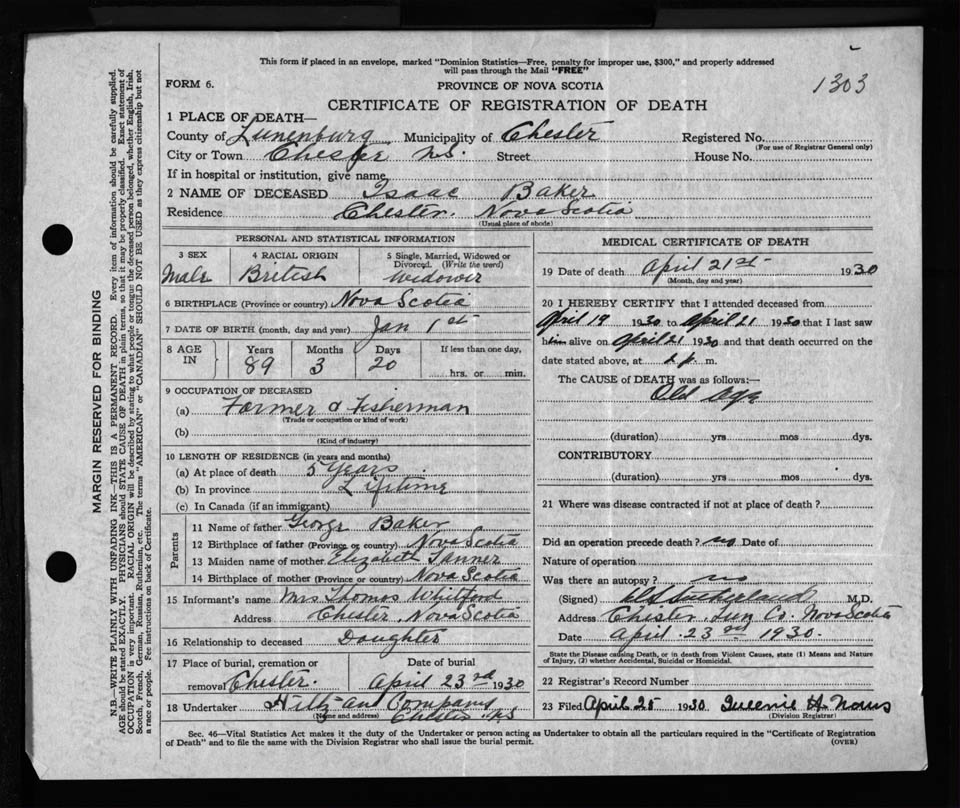 This form if placed in an envelope, marked "Dominion Statistics—Free, penalty for improper use, $300," and properly addressed
will pass through the Mail "FREE"
FORM 6.
PROVINCE OF NOVA SCOTIA
1303
CERTIFICATE OF REGISTRATION OF DEATH
1 PLACE OF DEATH—
County of Lunenburg Municipality of Chester Registered No.
(For use of Registrar General only)
City or Town Chester N.S. Street House No.
If in hospital or institution, give name
2 NAME OF DECEASED Isaac Baker
Residence Chester, Nova Scotia
(Usual place of abode)
PERSONAL AND STATISTICAL INFORMATION
3 SEX 4 RACIAL ORIGIN 5 Single, Married, Widowed or
Divorced. (Write the word)
Male British Widower
6 BIRTHPLACE (Province or country) Nova Scotia
7 DATE OF BIRTH (month, day and year) Jan 1st
8 AGE IN Years Months Days If less than one day,
89 3 20 hrs. or min.
9 OCCUPATION OF DECEASED
(a) Farmer & Fisherman
(Trade or occupation or kind of work)
(b)
(Kind of industry)
10 LENGTH OF RESIDENCE (in years and months)
(a) At place of death 5 Years
(b) In province Lifetime
(c) In Canada (if an immigrant)
Parents
11 Name of father George Baker
12 Birthplace of father (Province or country) Nova Scotia
13 Maiden name of mother Elizabeth Tanner
14 Birthplace of mother (Province or country) Nova Scotia
15 Informant's name Mrs Thomas Whitford
Address Chester, Nova Scotia
16 Relationship to deceased Daughter
17 Place of burial, cremation or Date of burial
removal Chester. April 23rd 1930
18 Undertaker Hiltz and Company
(Name and address) Chester N.S
MEDICAL CERTIFICATE OF DEATH
19 Date of death April 21st 1930
(Month, day and year)
20 I HEREBY CERTIFY that I attended deceased from
April 19 1930 to April 21 1930 that I last saw
him alive on April 21 1930 and that death occurred on the
date stated above, at 2 p. m.
The CAUSE of DEATH was as follows:—
Old Age
(duration) yrs mos dys.
CONTRIBUTORY
(duration) yrs mos dys.
21 Where was disease contracted if not at place of death?
Did an operation precede death? no Date of
Nature of operation
Was there an autopsy? no
(Signed) Sutherland M.D.
Address Chester Lun Co. Nova Scotia
Date April 23rd 1930.
State the Disease causing Death, or in death from Violent Causes, state (1) Means and Nature
of Injury, (2) whether Accidental, Suicidal or Homicidal.
22 Registrar's Record Number
23 Filed April 25 1930 Queenie H.
(Division Registrar)
Sec. 46—Vital Statistics Act makes it the duty of the Undertaker or person acting as Undertaker to obtain all the particulars required in the "Certificate of Registration
of Death" and to file the same with the Division Registrar who shall issue the burial permit.
(OVER)
MARGIN RESERVED FOR BINDING
N.B.—WRITE PLAINLY WITH UNFADING INK—THIS IS A PERMANENT RECORD. Every item of information should be carefully supplied.
AGE should be stated EXACTLY. PHYSICIANS should STATE CAUSE OF DEATH in plain terms, so that it may be properly classified. Exact statement of
OCCUPATION is very important. RACIAL ORIGIN will be described by stating to what people or tongue the deceased person belonged, whether English, Irish,
Scotch, French, German, Russian, Ruthenian, etc. The terms "AMERICAN" or "CANADIAN" SHOULD NOT BE USED as they express citizenship but not
a race or people. Fee instructions on back of Certificate.